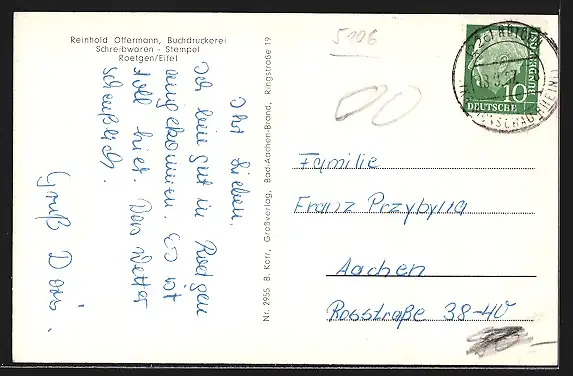 Reinhold Offermann, Buchdruckerei
Schreibwaren - Stempel
Roetgen/Eifel
Ihr Lieben.
Ich bin gut in Roetgen
angekommen. Es ist
toll hier. Das Wetter
scheußlich.
Gruß Doris.
Nr. 2955 B. Korr, Großverlag, Bad-Aachen-Brand, Ringstraße 19
5106
DEUTSCHE
10
Familie
Franz Przybylla
Aachen
Rosstraße 38-40